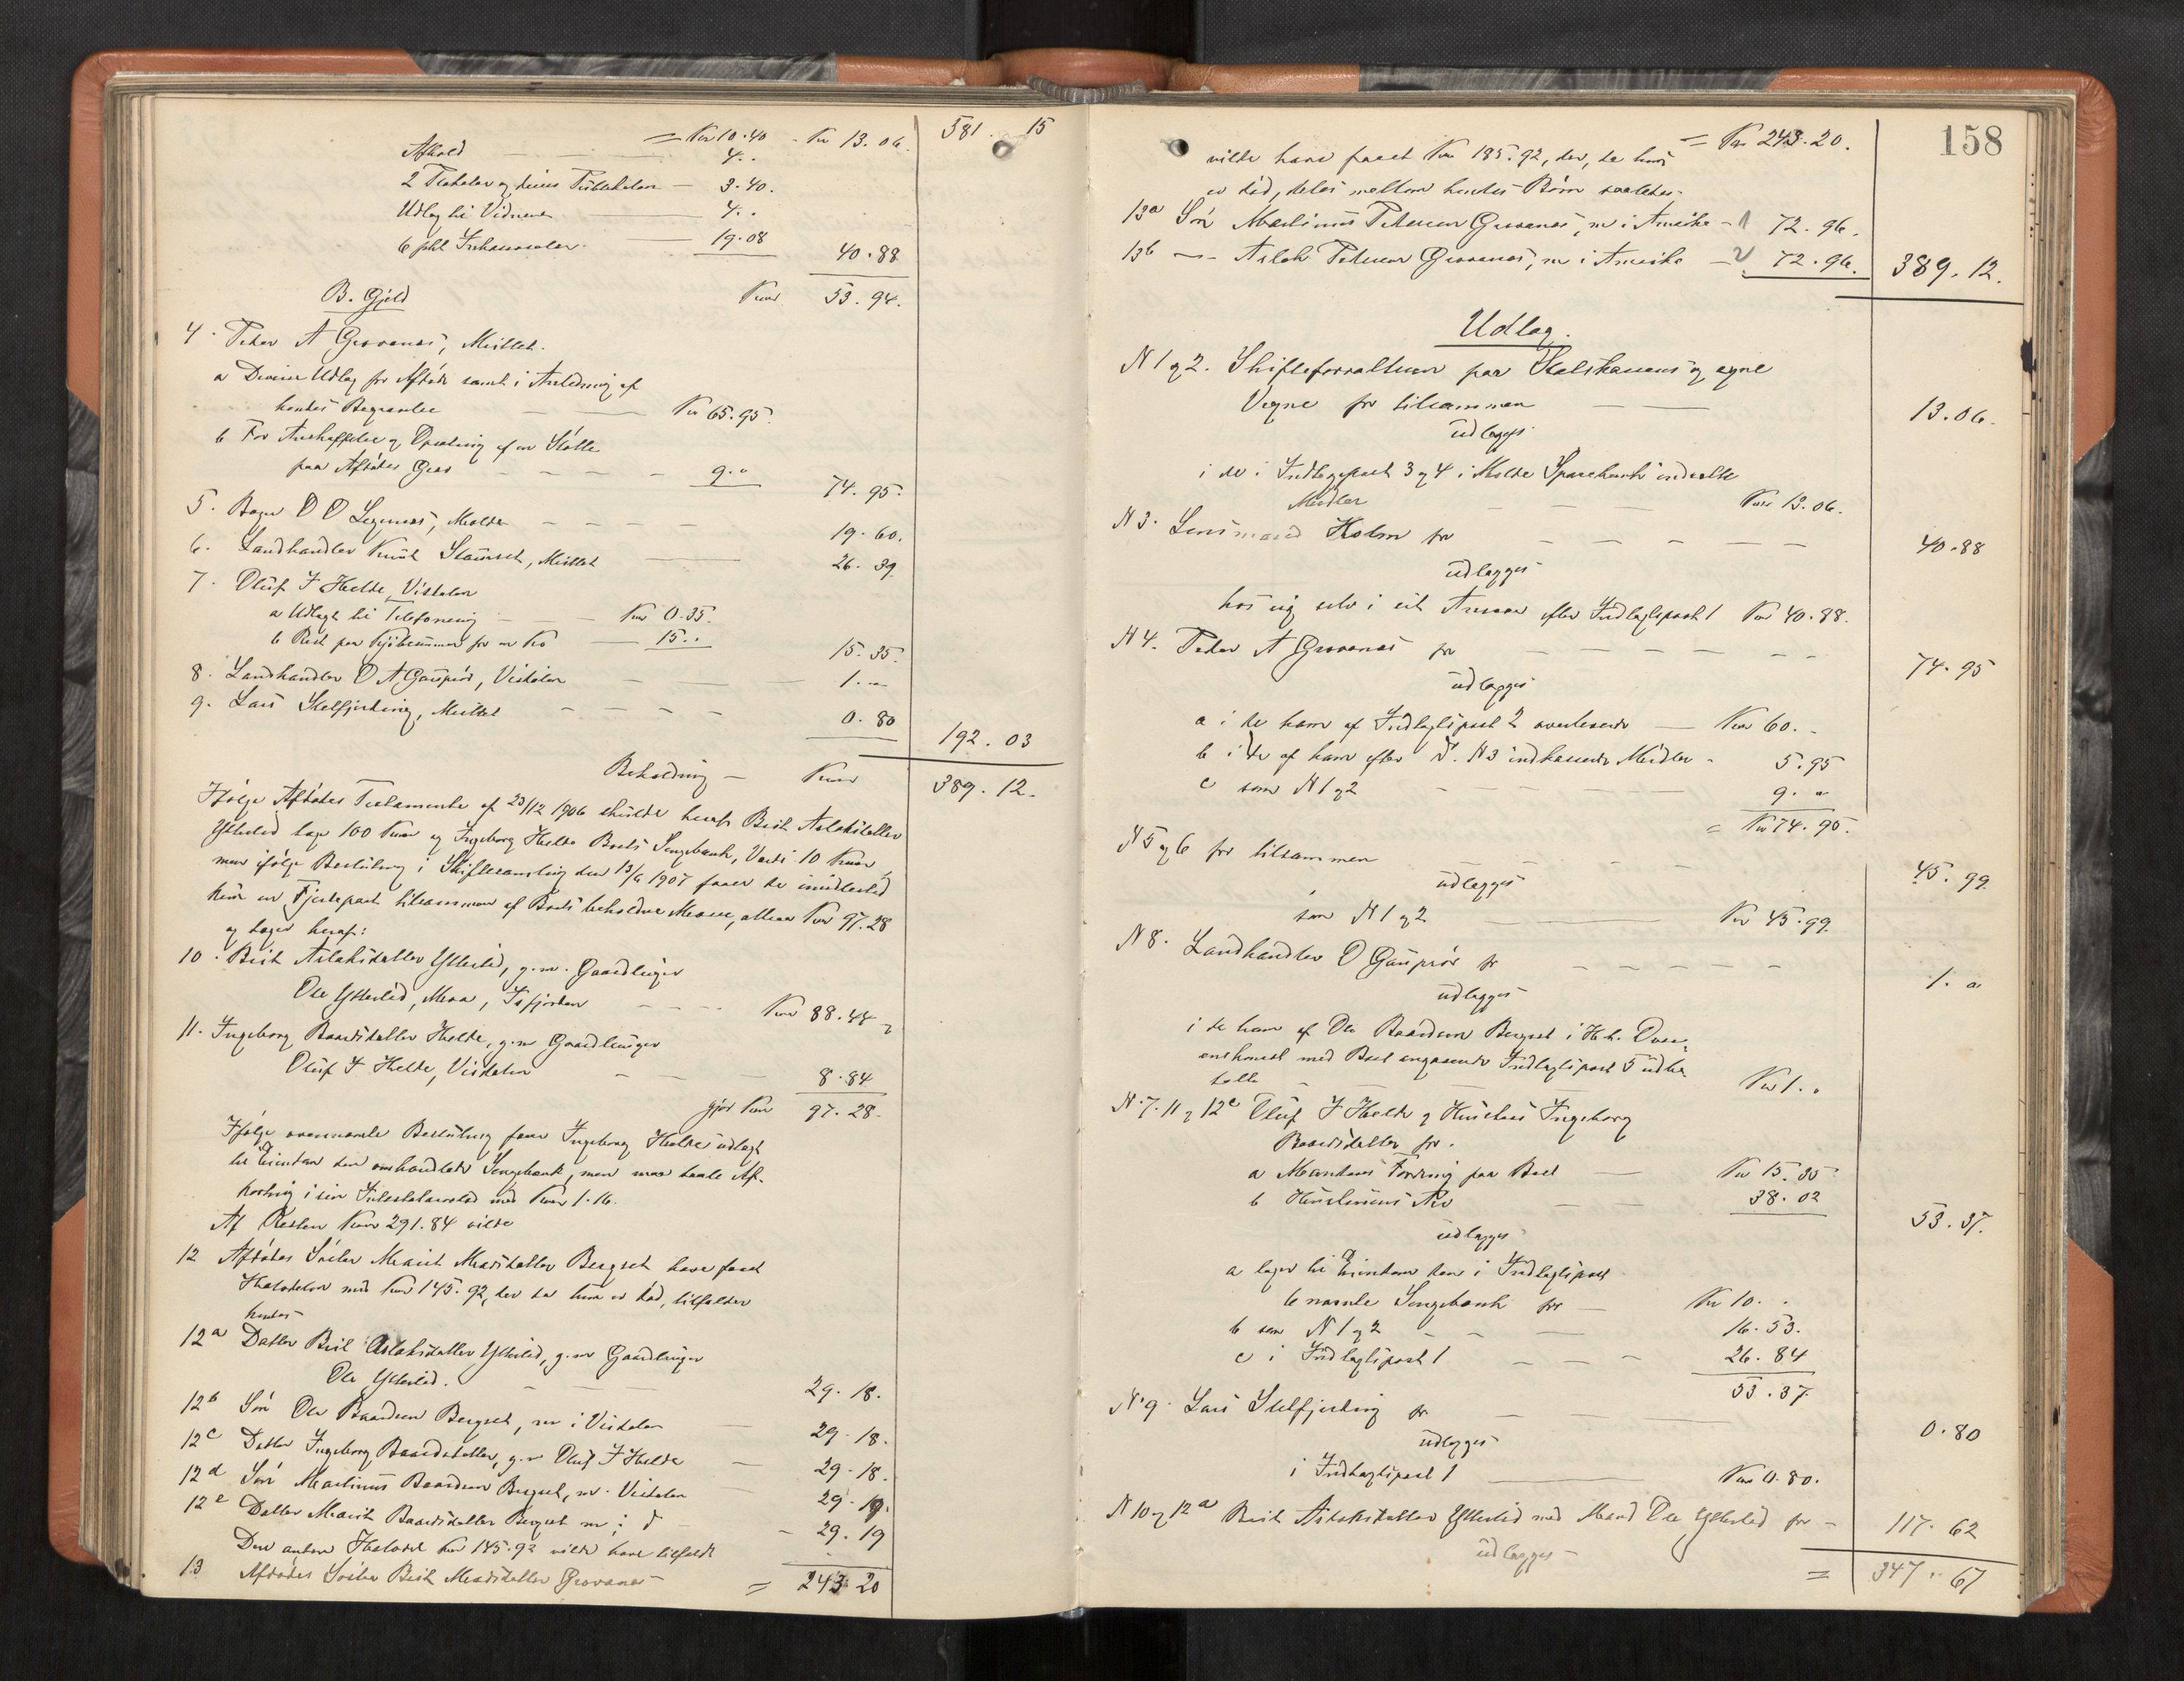 = Kr 10.40 - Kr 13.06. 581. 15
Afhold 4..
2 Plakater og deres 3.40.
Udlæg til Vidnerne 4..
6 pCt Inkassosalær 19.08 40.88
B. Gjeld Kroner 53.94.
4. Peder A Grovanes, Mittet.
a Diverse Udlæg for Afdøde samt i Anledning af
hendes Begravelse Kr 65.95.
b For Anskaffelse og Opsætning af en Støtte
paa Afdødes Grav 9.„ 74.95.
5. Bager O O Legernes, Molde 19.60.
6. Landhandler Knut Staurset, Mittet 26.39
7. Oluf I Helde, Visdalen
a Udlagt til Telefonering Kr 0.35.
b Rest paa Kjøbesummen for en Ko 15.. 15.35.
8. Landhandler O A Gaupseth, Visdalen 1.„
9. Lars Skelfjerding, Mittet 0.80 192.03
Beholdning – Kroner 389.12.
Ifølge Afdødes Testamente af 23/12 1906 skulde heraf Berit Aslaksdatter
Ytterlid tage 100 Kroner og Ingeborg Helde Boets Sengebænk, Værdi 10 Kroner,
men ifølge Beslutning i Skiftesamling den 13/6 1907 faaer de imidlertid
kun en Fjerdepart tilsammen af Boets beholdne Masse, altsaa Kr 97.28
og tager heraf:
10. Berit Aslaksdatter Ytterlid, g.m. Gaardbruger
Ole Ytterlid, Isfjorden Kroner 88.44
11. Ingeborg Baardsdatter Helde, g.m Gaardbruger
Oluf I Helde, Visdalen 8.84
gjør Kroner 97.28.
Ifølge ovennævnte Beslutning faaer Ingeborg Helde udlagt
til Eiendom den omhandlede Sengebænk, men maa taale Af-
kortning i sin Søsterdatterslod med Kroner 1.16.
Af Resten Kroner 291.84 vilde
12 Afdødes Søster Marit Madsdatter Bergset have faaet
Halvdelen med Kroner 145.92, der da hun er død, tilfalder
hendes
12a Datter Berit Aslaksdatter Ytterlid, g.m Gaardbruger
Ole Ytterlid. 29.18.
12b Søn Ole Baardsen Bergset, m i Visdalen 29.18.
12c Datter Ingeborg Baardsdatter, g.m Oluf I Helde 29.18.
12d Søn Martinus Baardsen Bergset, m. Visdalen 29.19.
12e Datter Marit Baardsdatter Bergset m i d 29.19
Den anden Halvdel Kr 145.92 vilde have tilfaldt
13 Afdødes Søster Berit Madsdatter Grovanes = 243 20
158
= Kr 243.20.
vilde have faaet Kr 145.92, der, da hun
er død, deles mellem hendes Børn saaledes:
13a Søn Martinus Pedersen Grovanes, m i Amerika – 1 72.96.
13b –„– Aslak Pedersen Grovanes, m i Amerika – 2 72.96. 389.12.
Udlæg.
N 1 og 2. Skifteforvalteren paa Statskassens og egne
Vegne for tilsammen 13.06.
udlægges
i de i Indtægtspost 3 og 4 i Molde Sparebank indsatte
Midler Kroner 13.06.
N 3. Lensmand Holm for 40.88
udlægges
hos sig selv i sit Ansvar efter Indtægtspost 1 Kr 40.88.
N 4. Peder A Grovanes for 74.95
udlægges
a i de ham af Indtægtspost 2 overleverede Kroner 60.„
b i de af ham efter d. N 3 indkasserede Midler 5.95
c som N 1 og 2 9.„
= Kr 74.95.
N 5 og 6 for tilsammen 45.99
udlægges
som N 1 og 2 Kr 45.99
N 8. Landhandler O Gaupseth for 1.„
udlægges
i de ham af Ole Baardsen Bergset i H.t. Over-
enskomst med Boet angaaende Indtægtspost 5 udbe-
talte Kr 1..
N. 7. 11 og 12c Oluf I Helde og Hustru Ingeborg
Baardsdatter for.
a Mandens Fordring paa Boet Kr 15.35
b Hustruens Arv 38.02 53.37.
udlægges
a tages til Eiendom den i Indtægtspost
6 nævnte Sengebænk for Kr 10..
b som N 1 og 2 16.53.
c i Indtægtspost 1 26.84
53.37.
N. 9. Lars Skelfjerding for 0.80
udlægges
i Indtægtspost 1 Kroner 0.80.
N 10 og 12a Berit Aslaksdatter Ytterlid med Mand Ole Ytterlid for – 117.62
udlægges
= 347.67